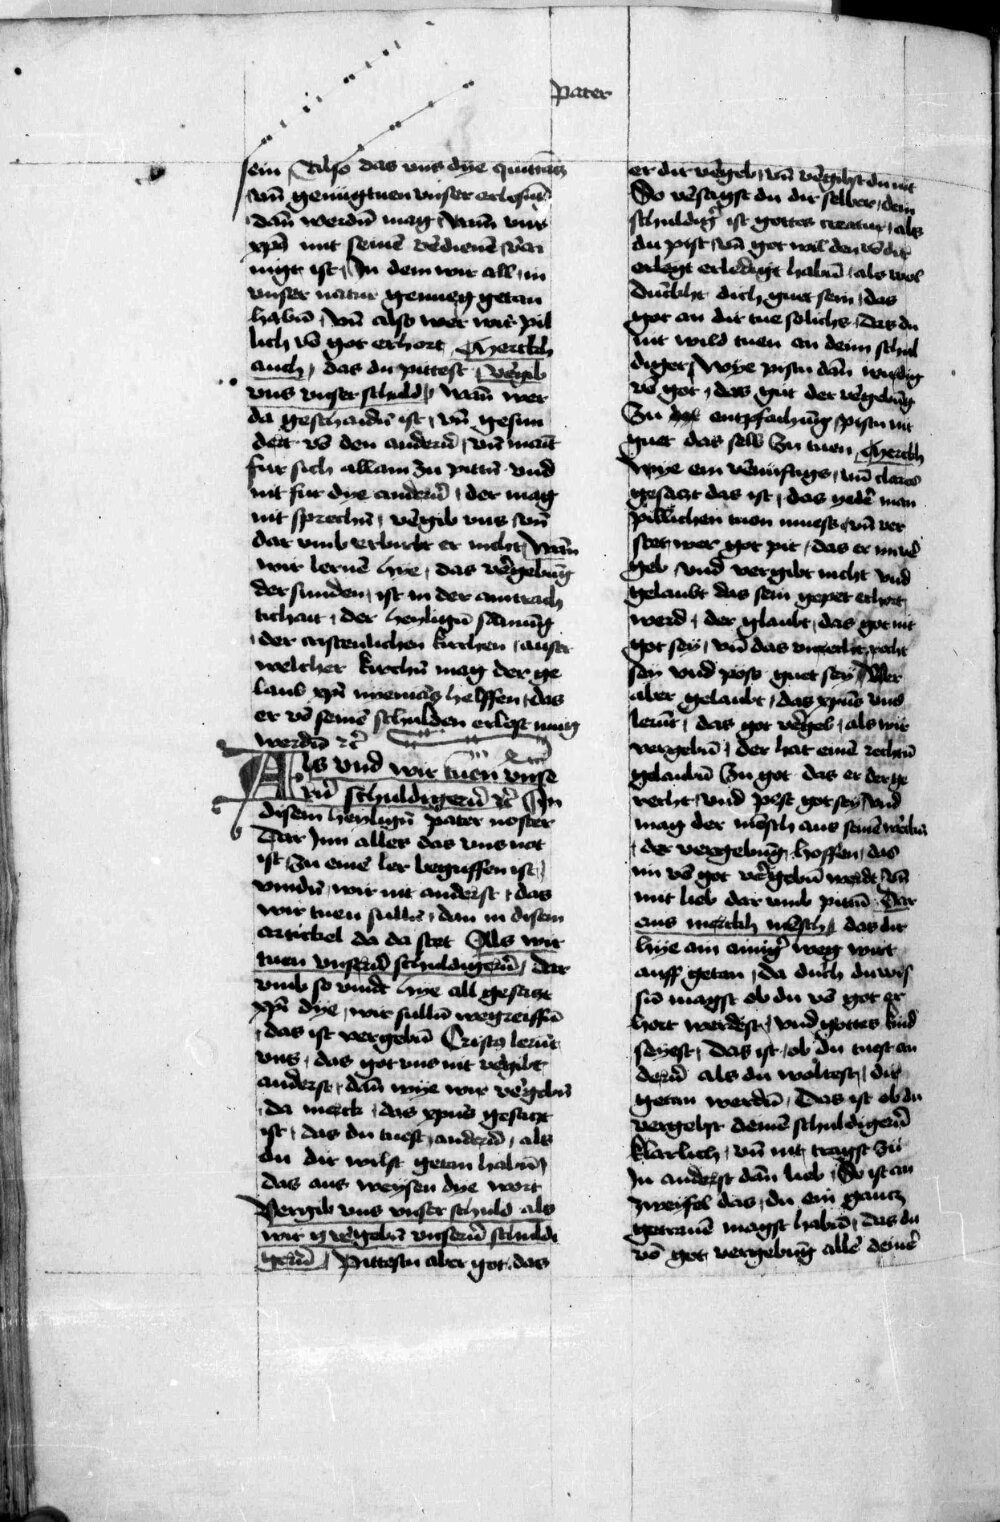 pater
sein / Also das vns dye quitūg
vn̄ genuigtuen vnser erlosūg
dan̄ werdn̄ mag / Wan̄ vns
xp̄s mit seinē v̓dienē v̓ai
nigt ist / In dem wir all / in
vnser natur genueg getan
habn̄ / vn̄ also wer wir pil
lich vō got erhort / Merckh
auch / das du pittest / v̓gib
vns vnser schuld / wan̄ wer
da geschaidn̄ ist / vn̄ gesun
dert vō den andern̄ / vn̄ maīt
fur sich allain zu pittn̄ vnd
nit fur dye andern̄ / der mag
nit sprechn̄ / v̓gib vns / vn̄
dar vmb erbirbt er nicht / Wan̄
wir lernē hye / das v̓gebūg
der sunden / ist in der aintrach
tichait / der heylign̄ sāmūg
der cristenlichen kirchen / auss̓
welcher kirchn̄ mag der ge
laub xp̄i nyemāts helffen / das
er vō seinē schulden erlost mug
werdn̄ ꝛc̄
Als vnd wir tuen vnse
rn̄ schuldigern̄ ꝛc̄ In
disem heylign̄ pater noster
Dar Inn alles das vns not
ist zu einē ler begriffen ist /
vindn̄ wir nit anderst / das
wir tuen sulln̄ / dan in disem
artickel da da stet Als wir
tuen vnsern̄ schuldigern̄ / dar
vmb so vindt hye all gesatzt
xp̄i dye / wir sulln̄ wegreiffn̄
/ das ist vergebn̄ Cristꝯ lernt
vns / das got vns nit v̓gibt
anderst / dan̄ wye wir v̓gebn̄
/ da merck / das xp̄us gesatzt
ist / das du tuest / andern̄ / als
du dir wilst getan habn̄ /
das aus weysen dye wort
Vergib vns vnser schuld als
wir v̓gebn̄ vnsern̄ schuldi
gern̄ / Pittestu aber got / das
er dir v̓geb / vn̄ v̓gibst du nit
So v̓sagst du dir selber / dein
schuldig̓ ist gottes creatur / als
du pist / vn̄ got wil den vō dir
erlegt erledigt habn̄ / als wol
dūckht dich guet sein / das
got an dir tue solichs / Das du
nit wild tuen an deim schul
diger / Wye pistu dān wirdig
vō got / das gut der v̓gebūg
Zu entpfachūg / pistu nit
guet das selb zu tuen / Merckh
wye ein v̓nuftigs / vn̄ clares
gesatzt das ist / das yed̓ man
pillichen tuen muest / vn̄ ver
stet / wer got pit / das er im v̓
geb / vnd vergibt nicht vnd
gelaubt das sein gepet erhort
werd / der glaubt / das got nit
got sey / vn̄ das vnrecht / recht
sey vnd pōs guet sey / Wer
aber gelaubt / das xp̄us vns
lernt / das got v̓geb / als wir
vergebn̄ / der hat einē rechtn̄
gelaubn̄ Zu got das er der ge
recht / vnd pest got sey / vnd
mag der mēsch aus seinē
/ der vergebūg hoffen / das
im vō got v̓gebn̄ werdt / vn̄
mit lieb dar vmb pittn̄ / Dar
aus merckh mēsch / das dir
hye ain ainig̓ weg wirt
auff getan / da durch du wis
sn̄ magst ob du vō got er
hort werdest / vnd gottes kind
seyest / das ist / ob du tuest an
dern̄ als du woltest / dir
getan werdn̄ / Das ist ob du
vergebst deinē schuldigern̄
klarlich / vn̄ nit tragst zu
In anderst dān lieb / So ist an
zweifel das / du ein gantz
getrauē magst habn̄ / das du
vō got vergebūg allē deinē